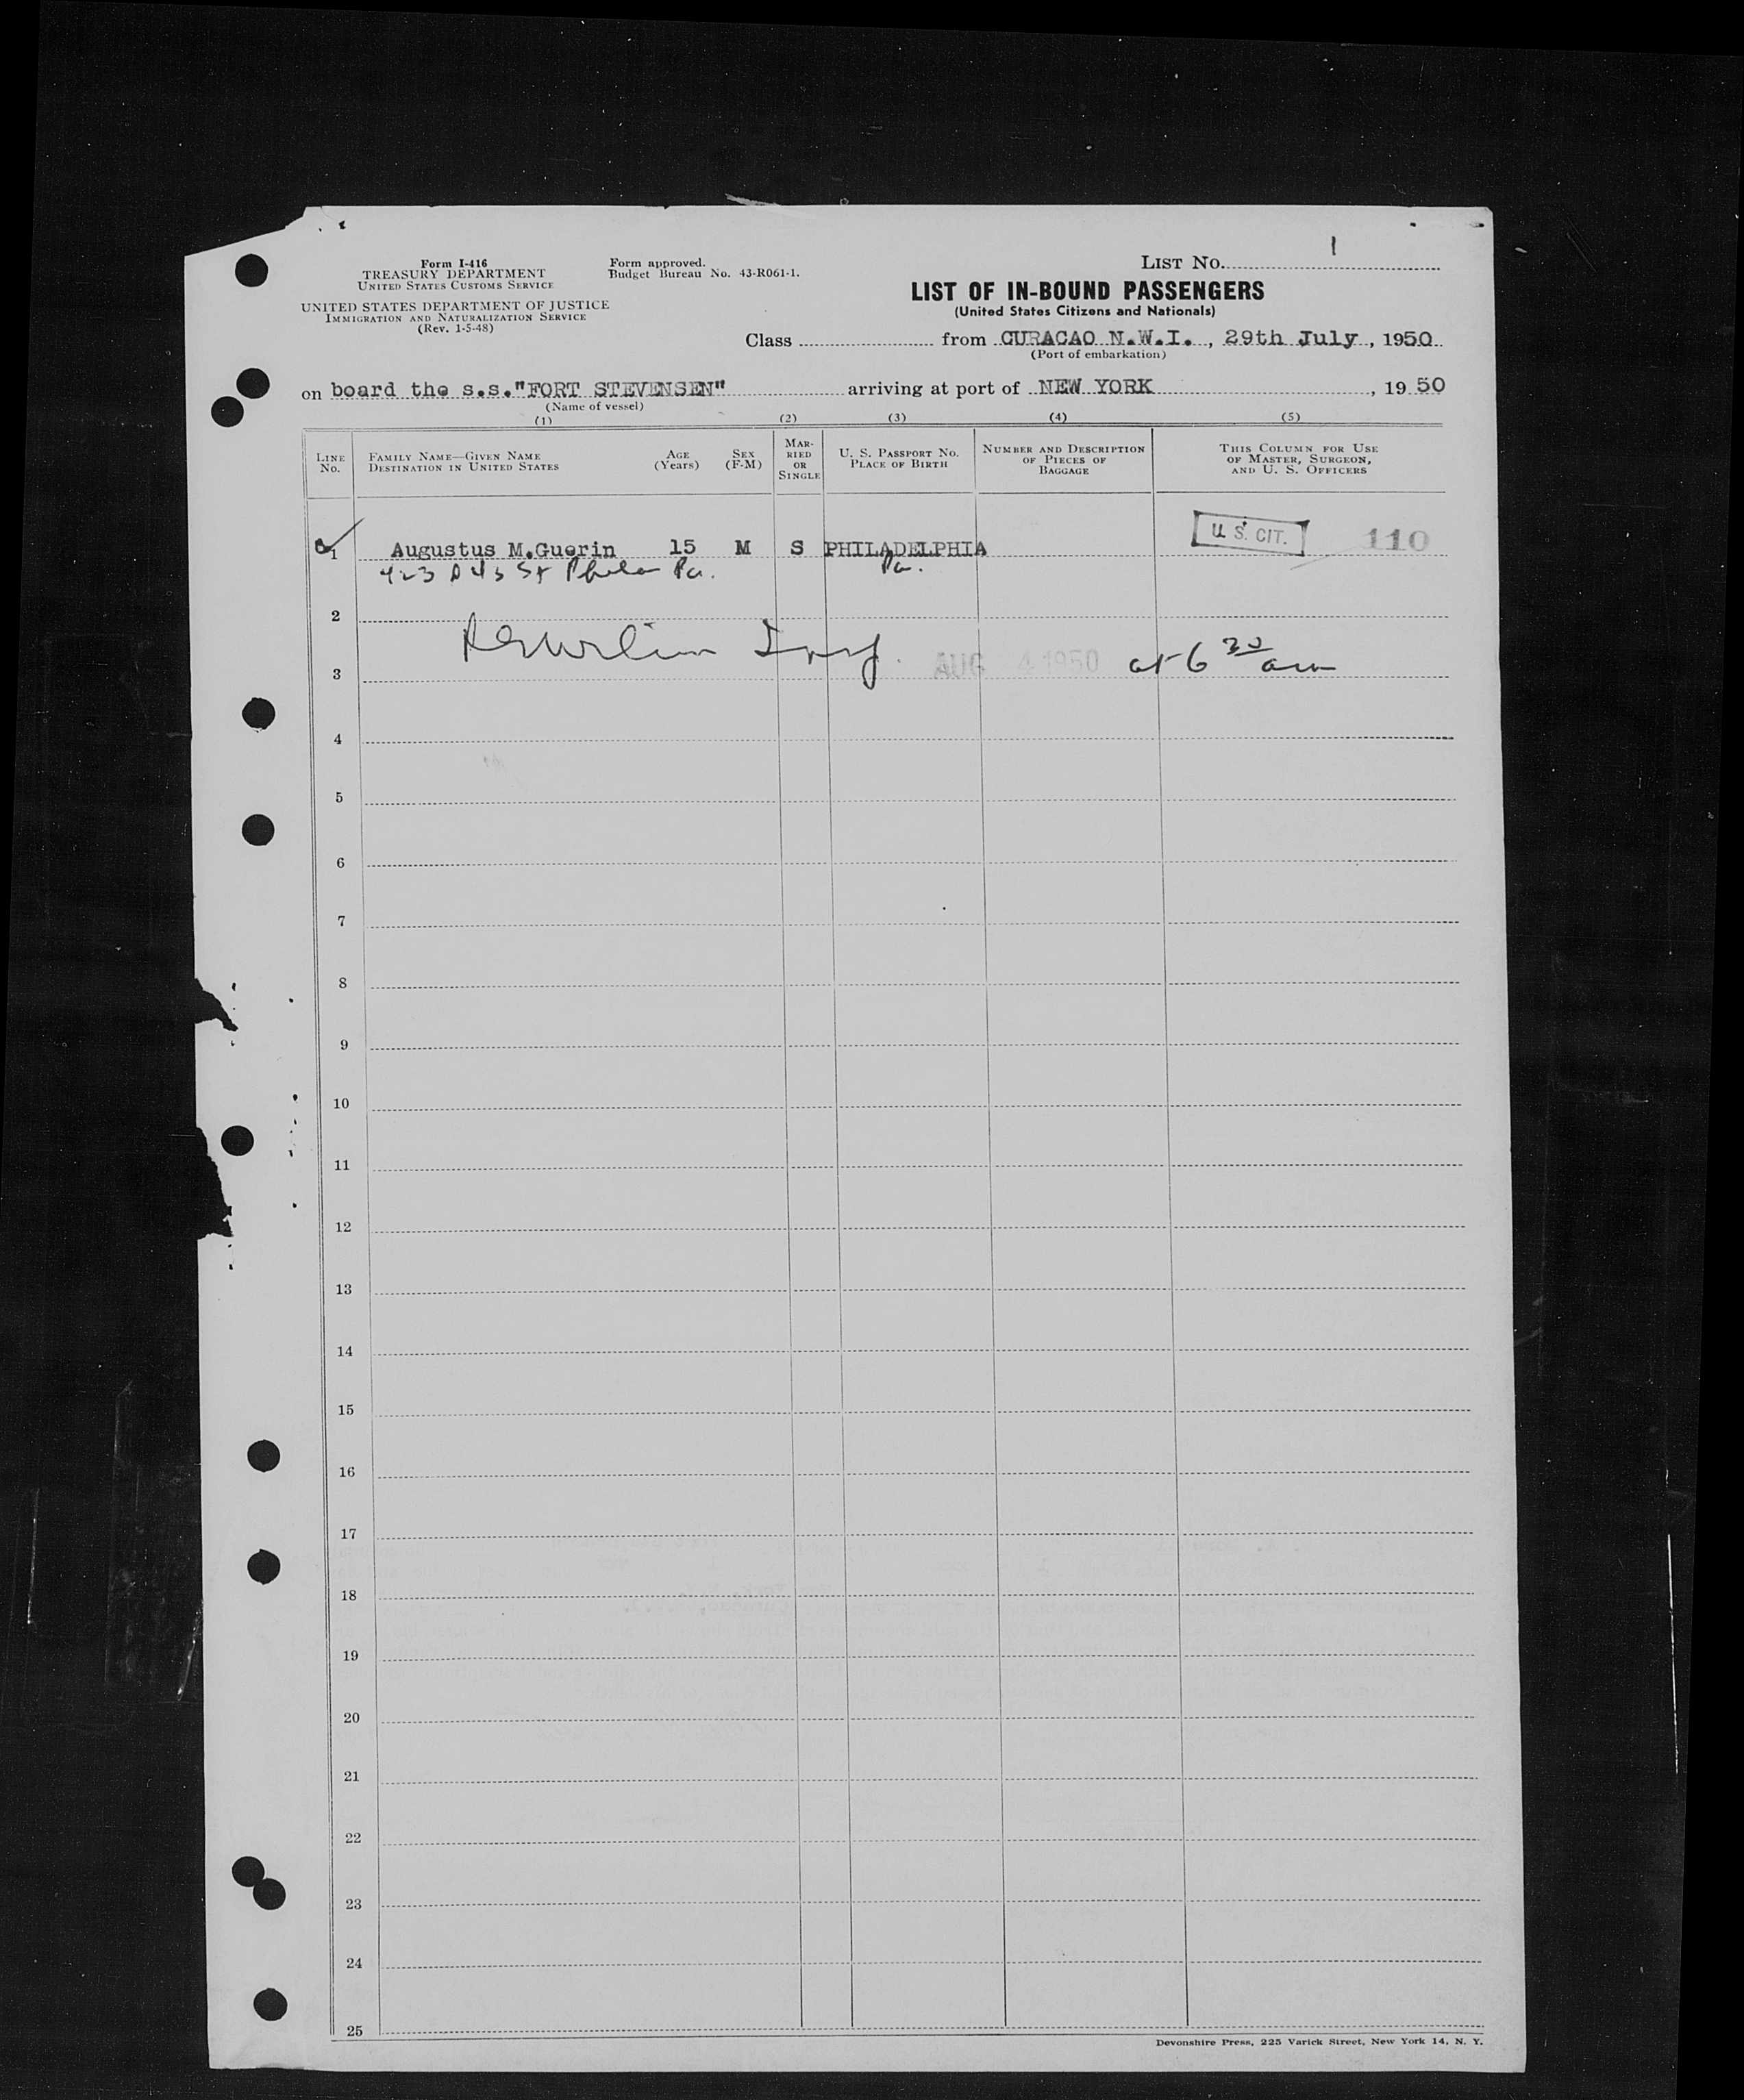 Form I-416
TREASURY DEPARTMENT
UNITED STATES CUSTOMS SERVICE
UNITED STATES DEPARTMENT OF JUSTICE
IMMIGRATION AND NATURALIZATION SERVICE
(Rev. 1-5-48)
Form approved.
Budget Bureau No. 43-R061-1.
LIST NO. 1
LIST OF IN-BOUND PASSENGERS
(United States Citizens and Nationals)
Class from CURACAO N.W.I., 29th July, 1950
(Port of embarkation)
on board the s.s."FORT STEVENSEN" arriving at port of NEW YORK, 1950
(Name of vessel)
(1) (2) (3) (4) (5)
LINE NO.
FAMILY NAME—GIVEN NAME
DESTINATION IN UNITED STATES
AGE (Years)
SEX (F-M)
MARRIED OR SINGLE
U. S. PASSPORT NO.
PLACE OF BIRTH
NUMBER AND DESCRIPTION OF PIECES OF BAGGAGE
THIS COLUMN FOR USE OF MASTER, SURGEON, AND U. S. OFFICERS
1 Augustus M.Guerin 15 M S PHILADELPHIA U. S. CIT. 110
423 43 St Phila Pa. Pa.
2
AUG 4 1950 at 6 30 am
3
4
5
6
7
8
9
10
11
12
13
14
15
16
17
18
19
20
21
22
23
24
25
Devonshire Press, 225 Varick Street, New York 14, N. Y.